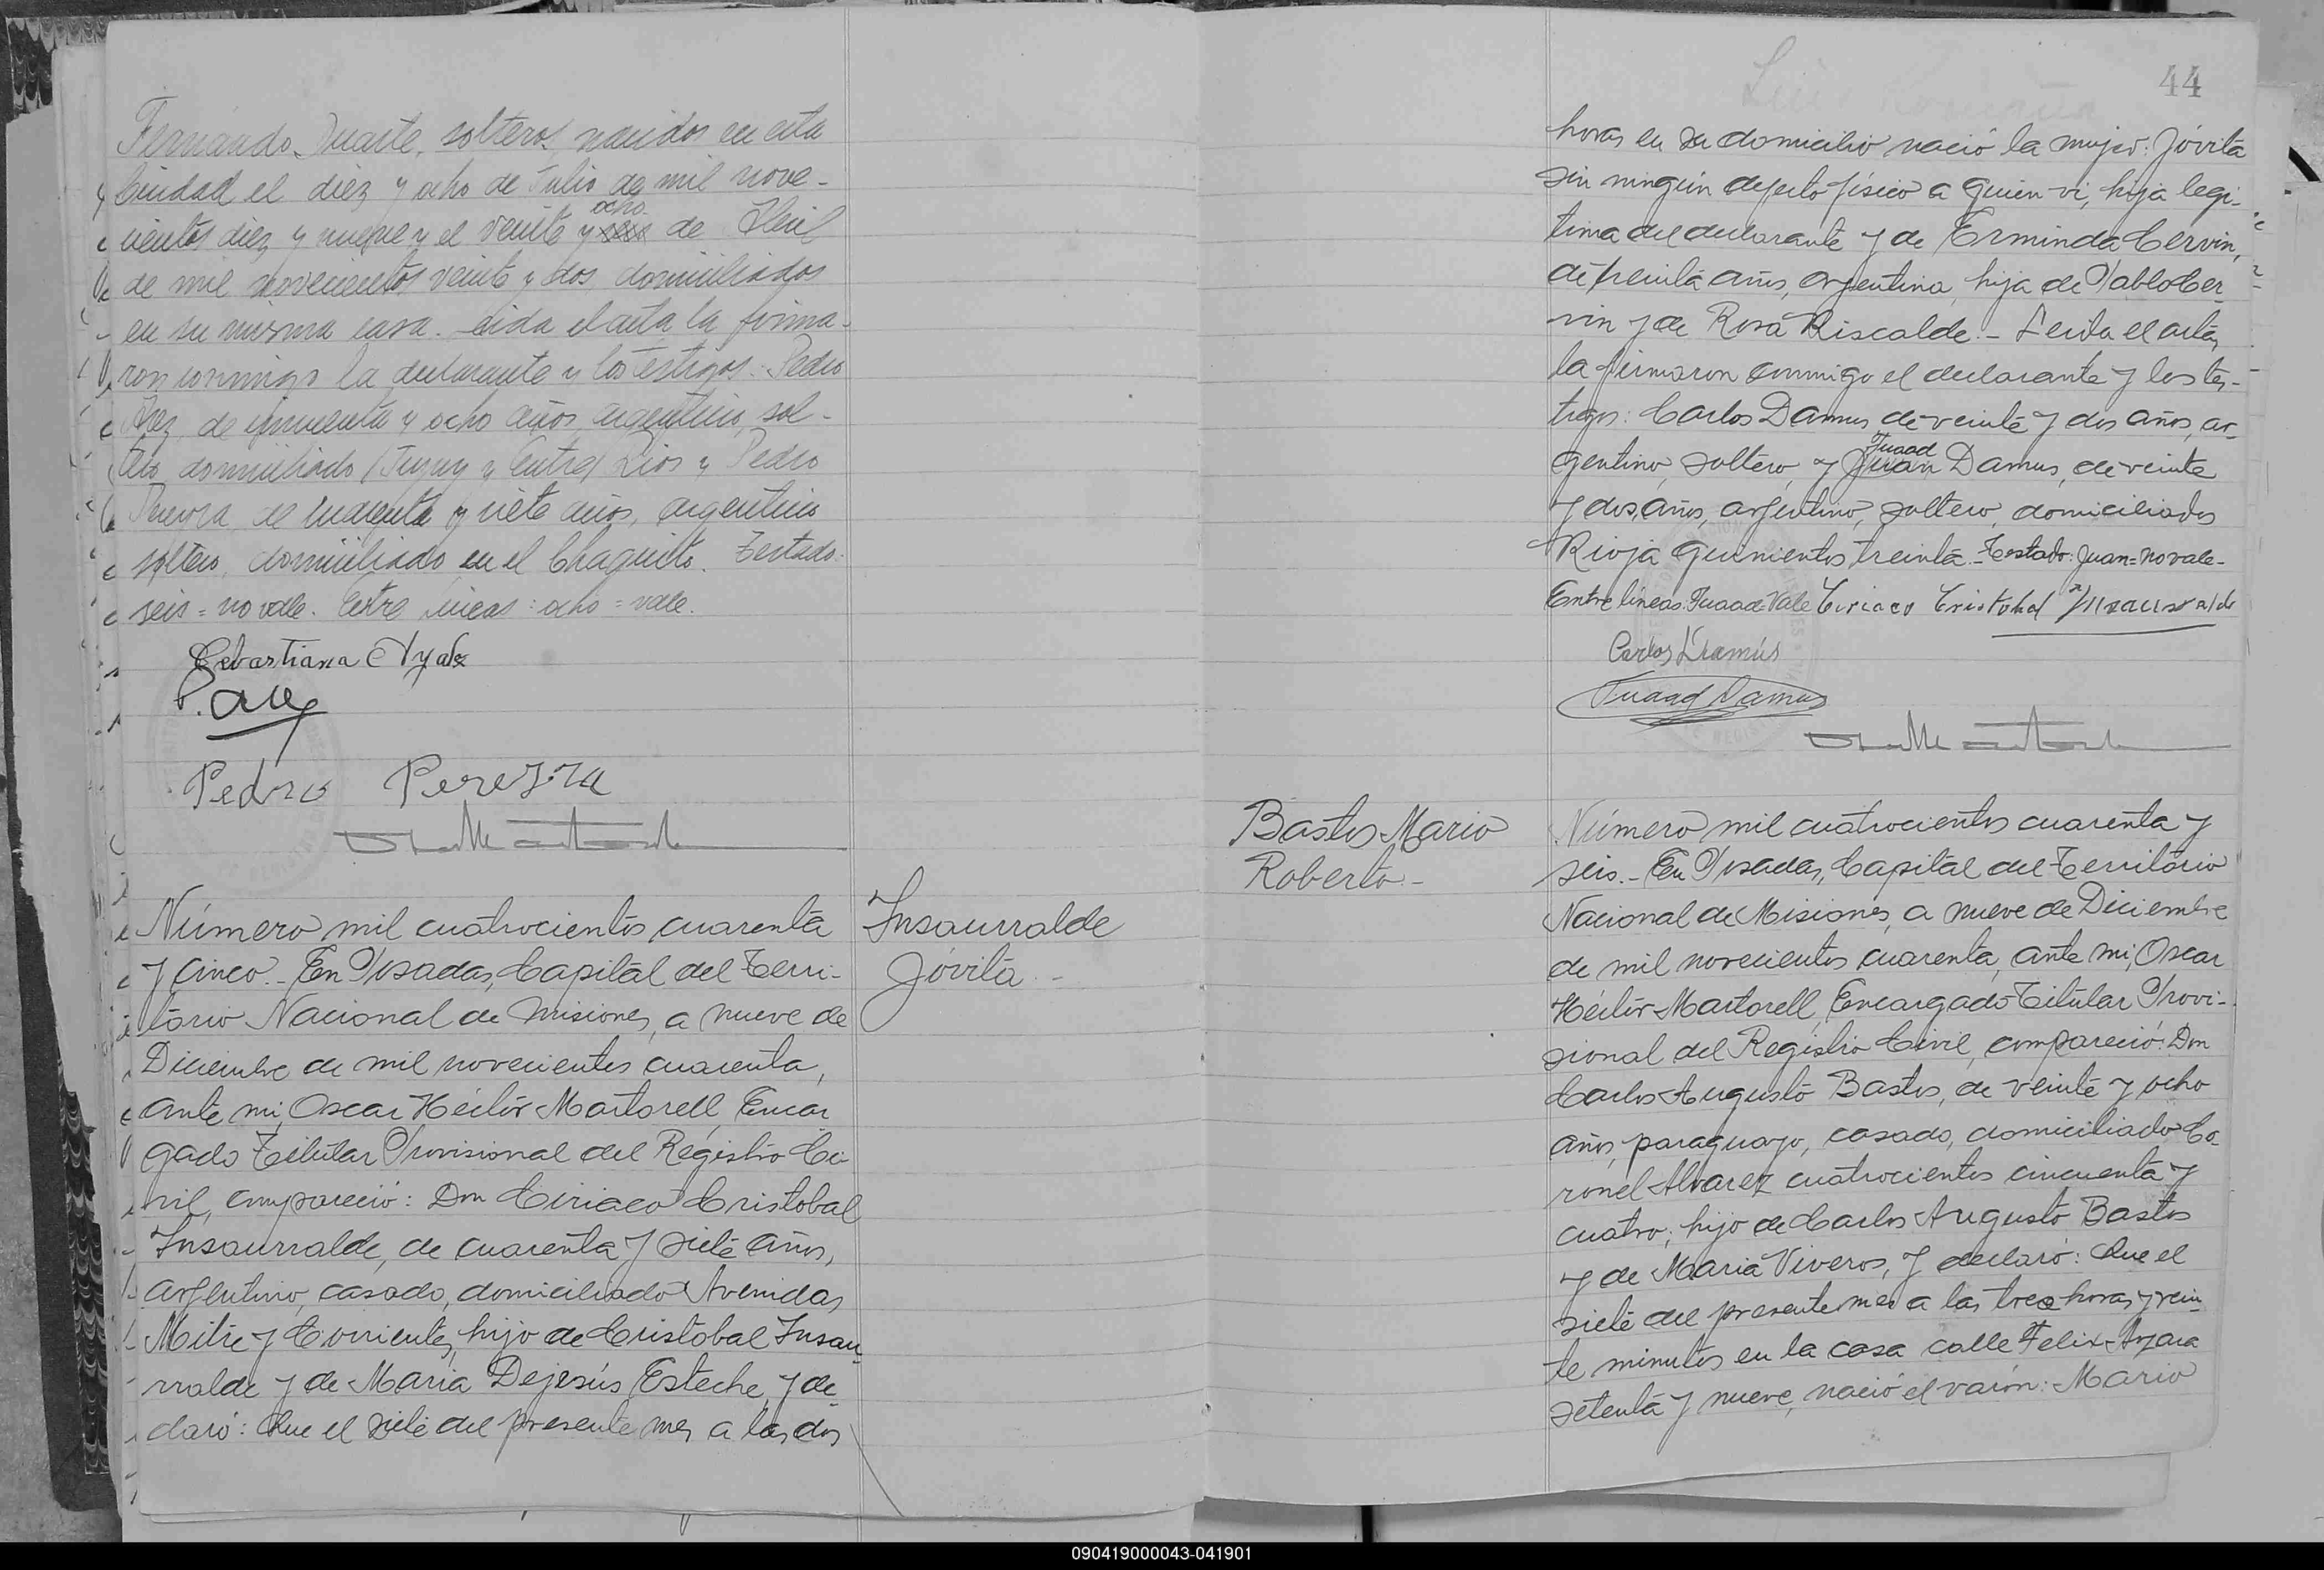 Fernando Duarte, solteros, nacidos en esta
Ciudad el diez y ocho de Julio de mil nove-
cientos diez y nueve y el veinte y seis ocho de Abril
de mil novecientos veinte y dos domiciliados
en su misma casa. Leida el acta la firma-
ron conmigo la declarante y los testigos: Pedro
de cincuenta y ocho años, argentino, sol-
tero, domiciliado Jujuy y Entre Rios y Pedro
Pereyra de cuarenta y siete años, argentino
soltero, domiciliado en el Chaquito. Testado:
seis = no vale. Entre lineas: ocho = vale.
Sebastiana Ayala
Pedro Pereyra
Número mil cuatrocientos cuarenta
y cinco.- En Posadas, Capital del Terri-
torio Nacional de Misiones, a nueve de
Diciembre de mil novecientos cuarenta,
ante mi, Oscar Héctor Martorell, Encar
gado Titular Provisional del Registro Ci-
vil, compareció: Don Ciriaco Cristobal
Insaurralde, de cuarenta y siete años,
argentino, casado, domiciliado Avenidas
Mitre y Corrientes, hijo de Cristobal Insau-
rralde y de Maria Dejesús Esteche, y de-
claró: Que el siete del presente mes a las dos
Insaurralde
Jóvita
44
horas en su domicilio nació la mujer: Jóvita
sin ningún defecto físico a quien vi, hija legi-
tima del declarante y de Erminda Cervin,
de treinta años, argentina, hija de Pablo Cer-
vin y de Rosa Riscalde.- Leida el acta,
la firmaron conmigo el declarante y los tes-
tigos: Carlos Damus de veinte y dos años, ar-
gentino, soltero, y Juan Fuaad Damus, de veinte
y dos años, argentino, soltero, domiciliados
Rioja quinientos treinta.- Testado: Juan=no vale-
Entre lineas: Fuaad=Vale Ciriaco Cristobal Insaurralde
Carlos Damús
Fuaad Damus
Bastos Mario
Roberto-
Número mil cuatrocientos cuarenta y
seis.- En Posadas, Capital del Territorio
Nacional de Misiones, a nueve de Diciembre
de mil novecientos cuarenta, ante mi, Oscar
Héctor Martorell, Encargado Titular Provi-
sional del Registro Civil, compareció: Don
Carlos Augusto Bastos, de veinte y ocho
años, paraguayo, casado, domiciliado Co-
ronel Alvarez cuatrocientos cincuenta y
cuatro; hijo de Carlos Augusto Bastos
y de Maria Viveros, y declaró: Que el
siete del presente mes a las trece horas y vein-
te minutos en la casa calle Felix Azara
setenta y nueve, nació el varón: Mario
090419000043-041901